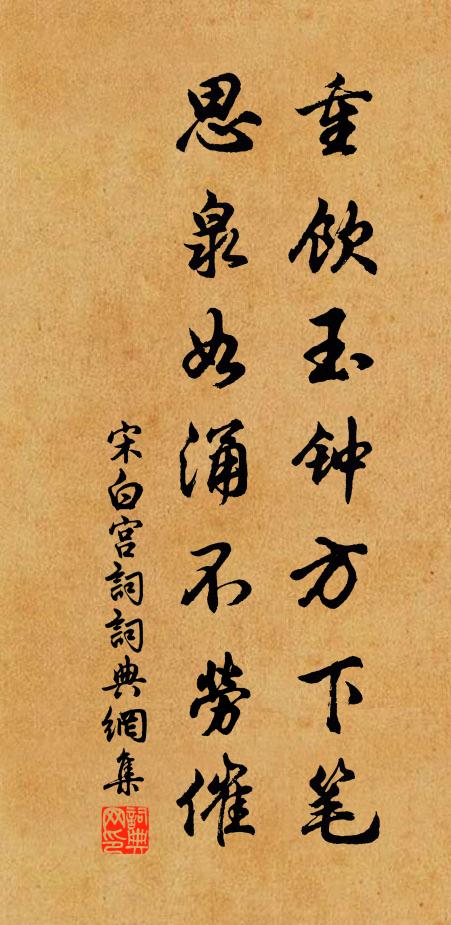 重饮玉钟方下笔
思泉如涌不劳催
宋白宫詞詞典網集
詞典网印